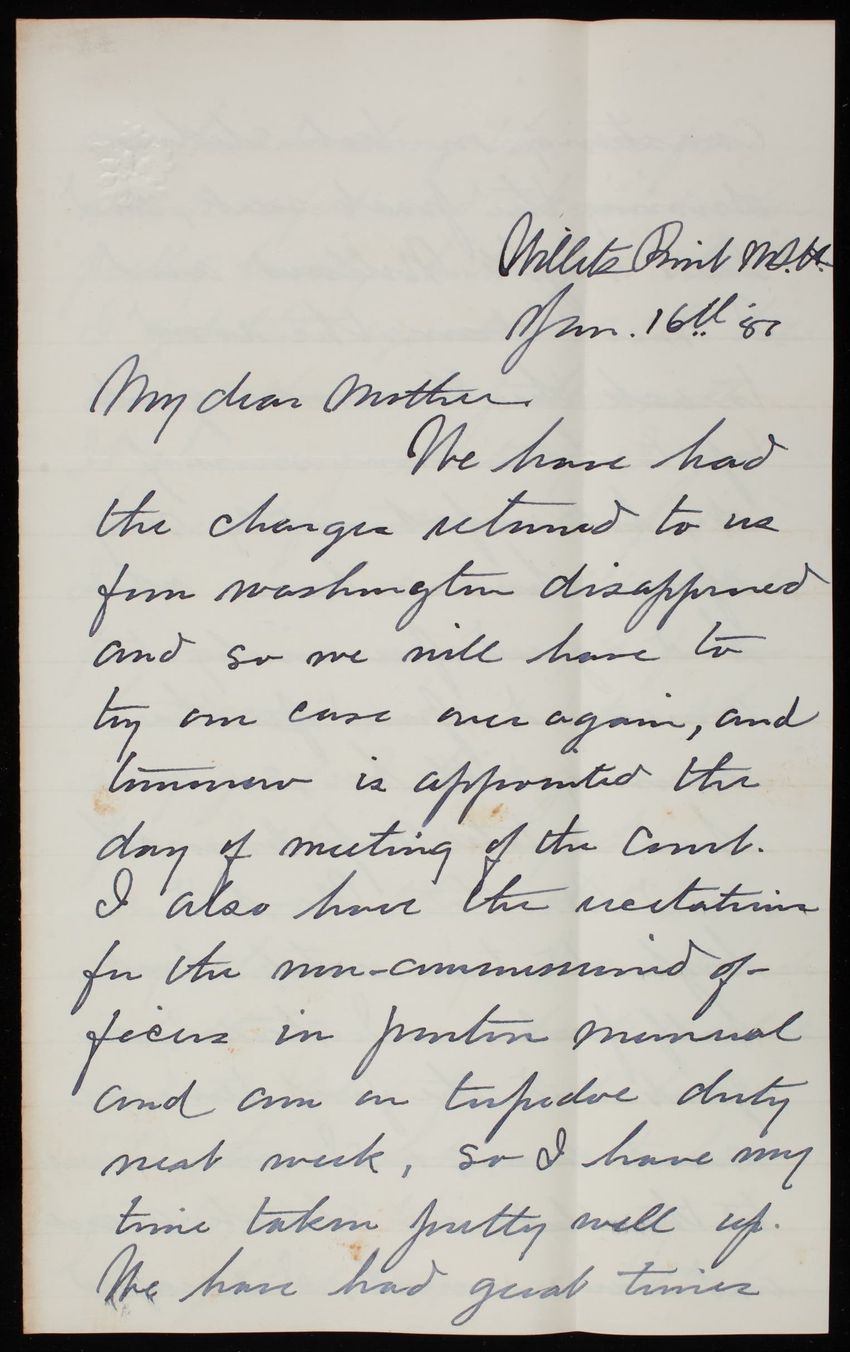 Willets Point N.Y.
Jan. 16th '87
My dear Mother.
We have had
the charges returned to us
from Washington disapproved
and so we will have to
try our case over again, and
tomorrow is appointed the
day of meeting of the Court.
I also have the recitations
for the non-commissioned of-
ficers in ponton manual
and am on torpedoe duty
next week, so I have my
time taken pretty well up.
We have had great times